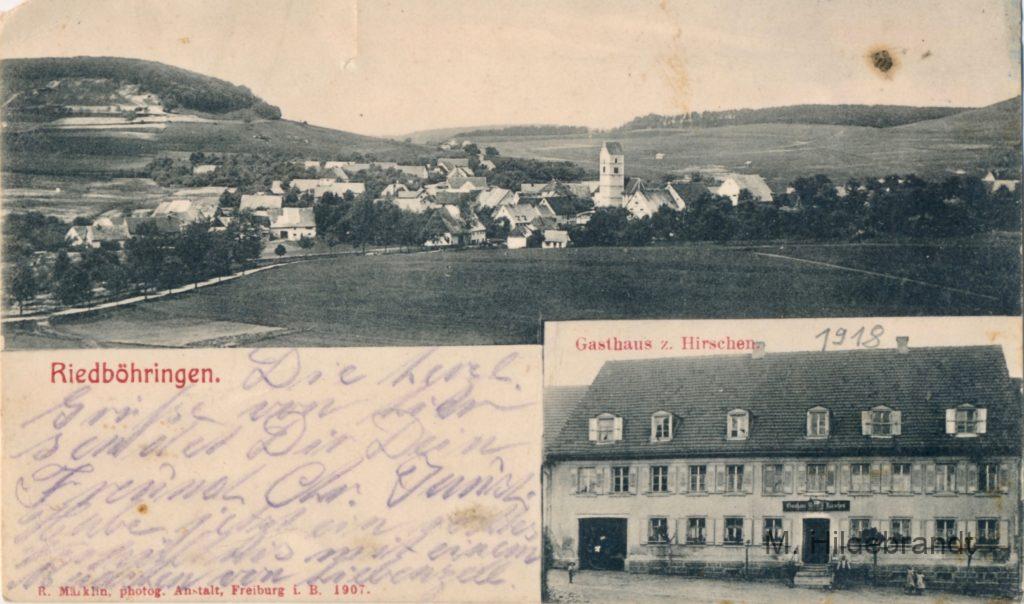 Gasthaus z. Hirschen.
1918
Riedböhringen.
Die herzl.
Grüße von hier
sendet Dir Dein
Freund Chr.
Habe jetzt ein
mit einem
Mädchen von
R. Märklin, photog. Anstalt, Freiburg i. B. 1907.
Gasthaus Hirschen
M. Hildebrandt